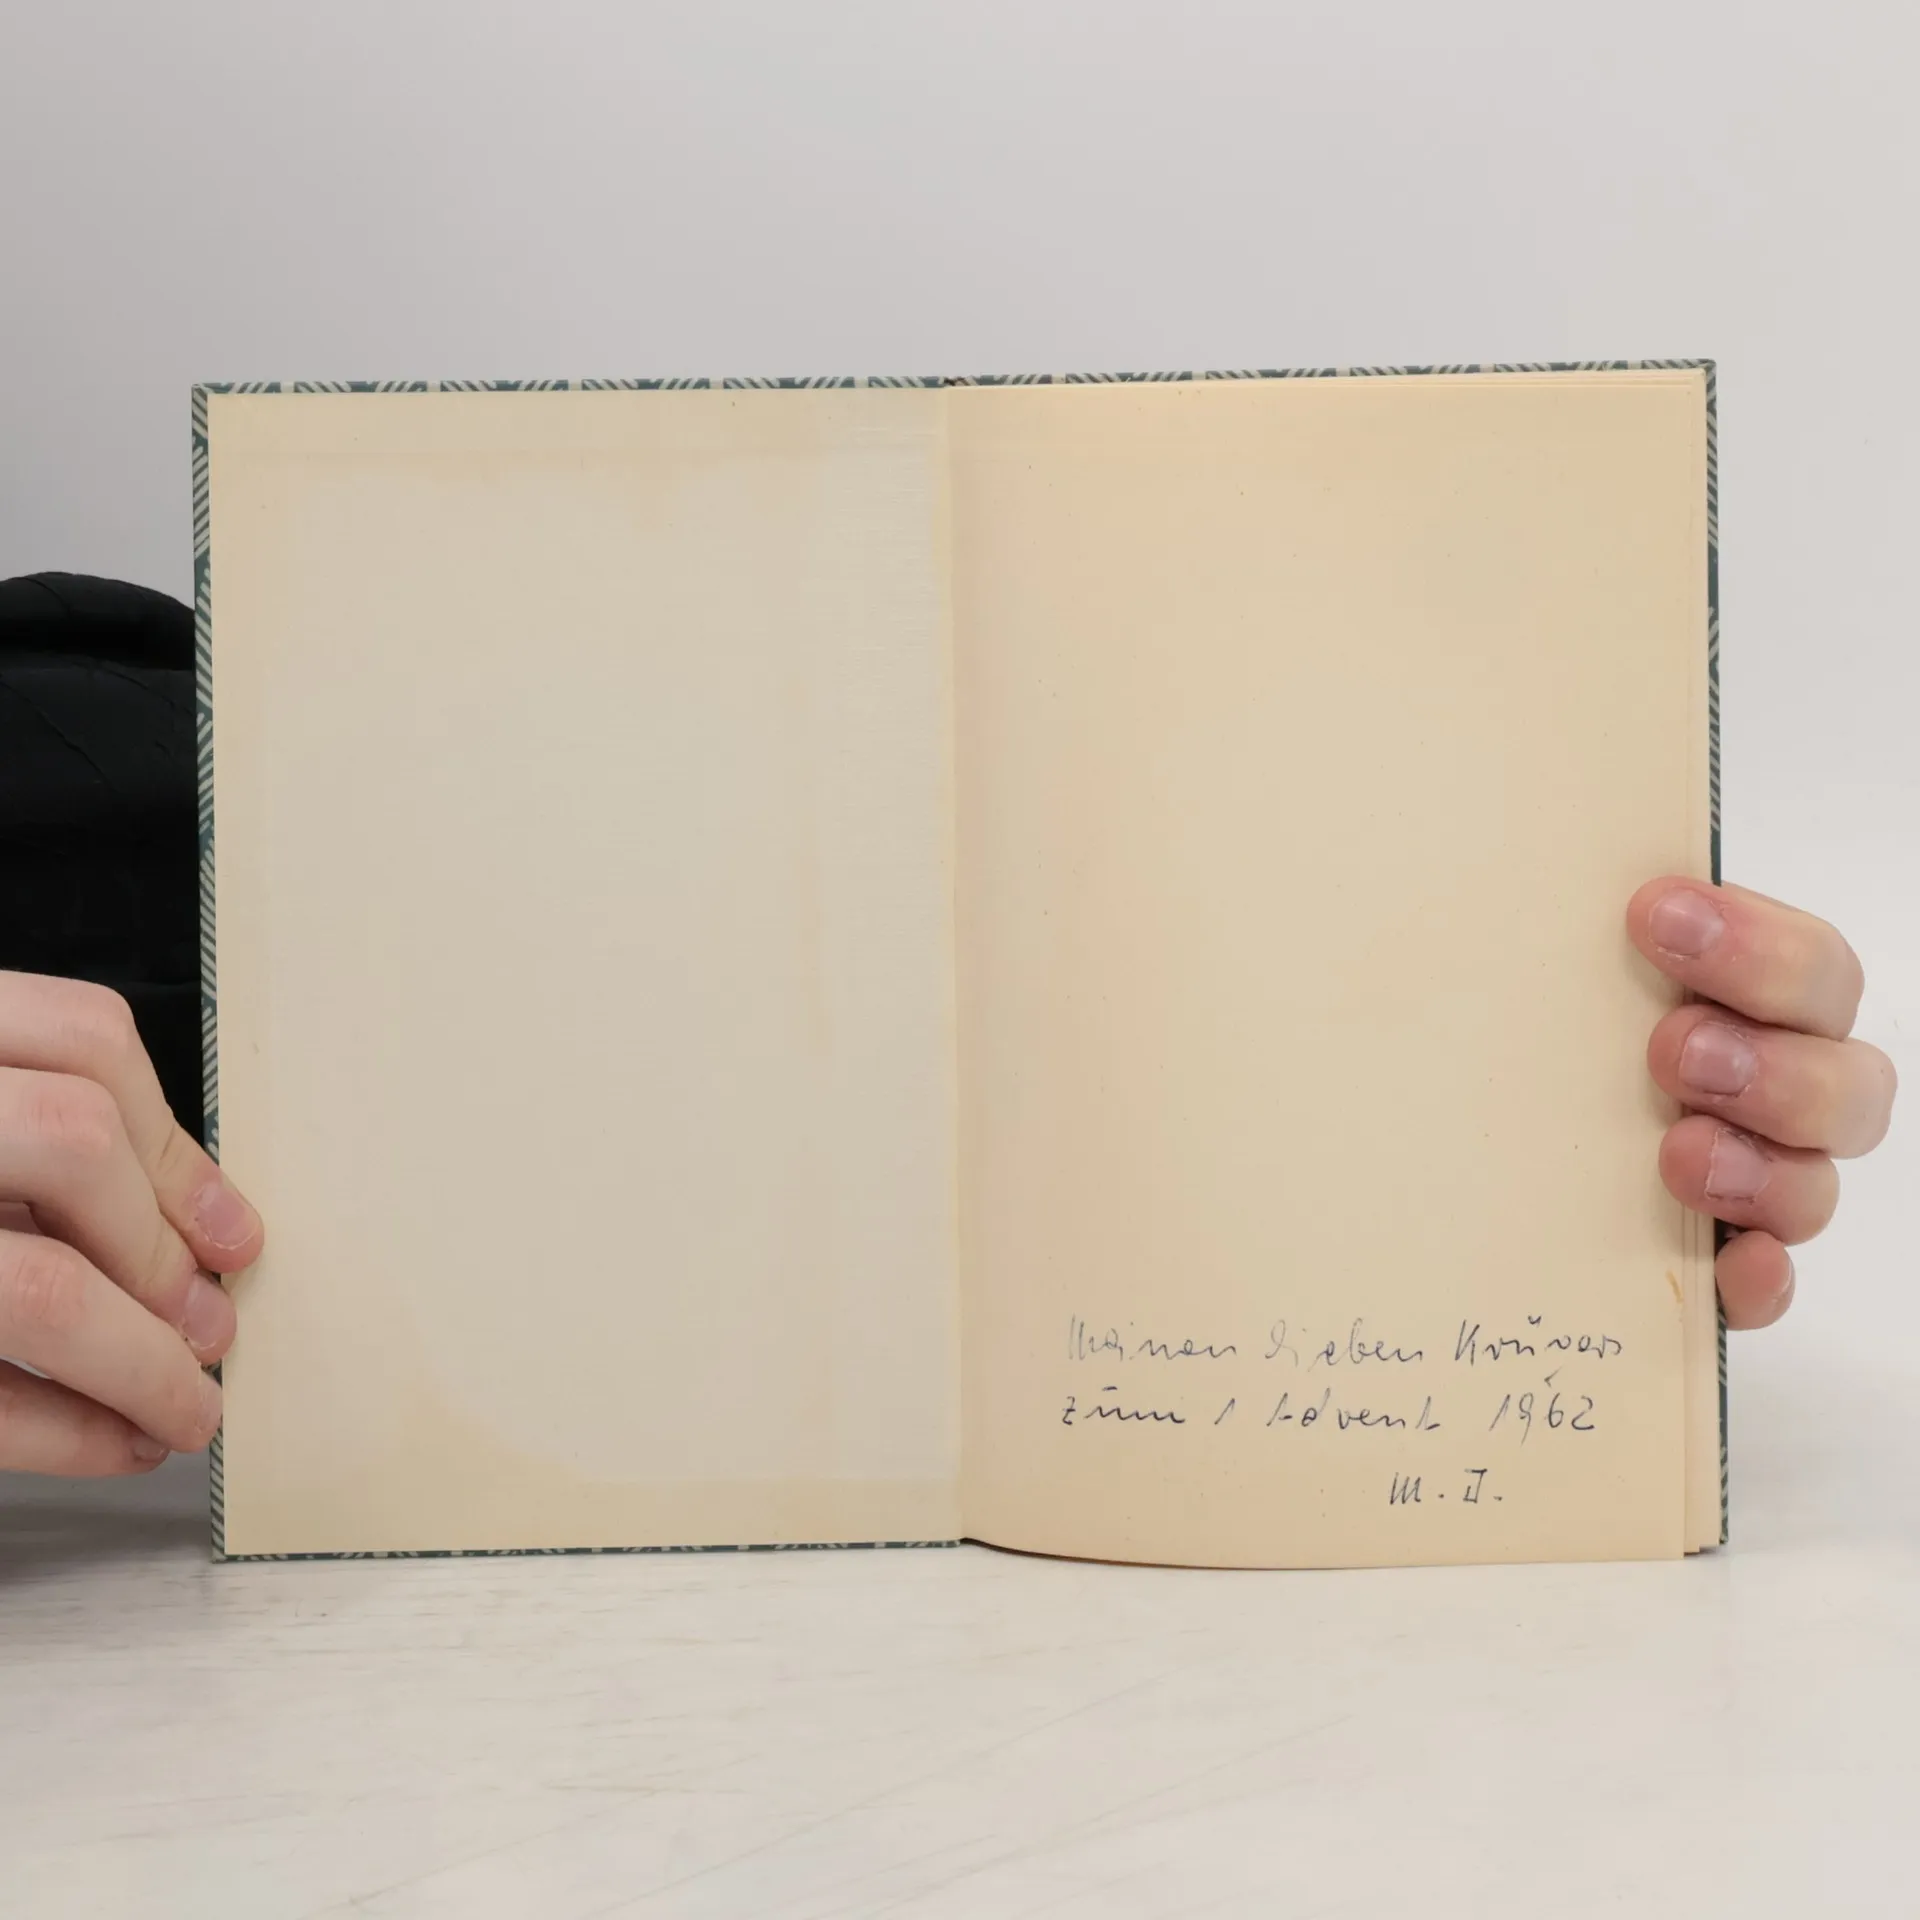 Meinen lieben Krüvers
zum 1 Advent 1962
M. J.